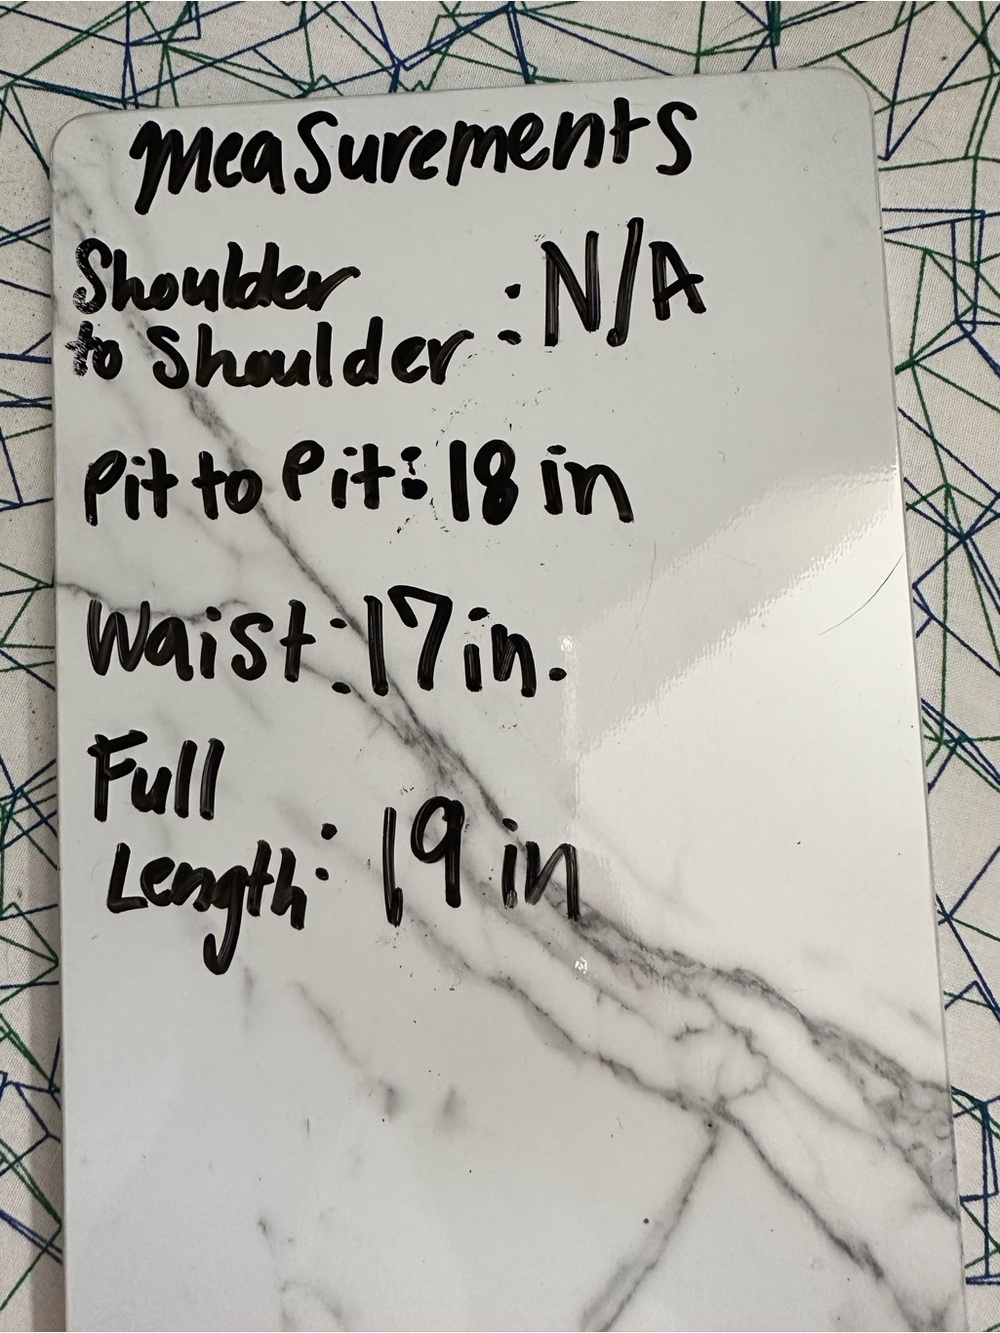 Measurements
Shoulder
to Shoulder : N/A
Pit to Pit: 18 in
Waist: 17 in.
Full
Length: 19 in